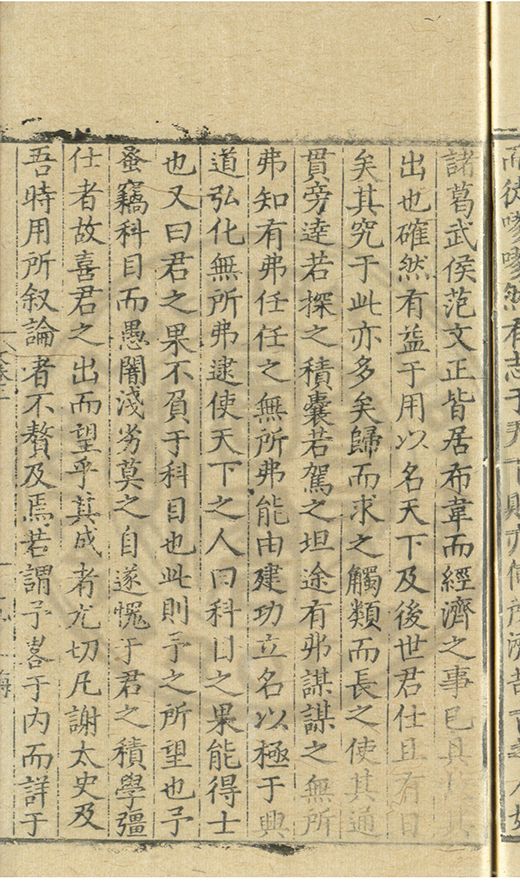 而徒嘐嘐然有志于天下則亦何
諸葛武侯范文正皆居布韋而經濟之事已具其
出也確然有益于用以名天下及後世君仕且有日
矣其究于此亦多矣歸而求之觸類而長之使其通
貫旁達若探之積囊若駕之坦途有弗謀謀之無所
弗知有弗任任之無所弗能由建功立名以極于興
道弘化無所弗逮使天下之人曰科目之果能得士
也又曰君之果不負于科目也此則予之所望也予
蚤竊科目而愚闇淺劣莫之自遂愧于君之積學彊
仕者故喜君之出而望乎其成者尤切凡謝太史及
吾時用所叙論者不贅及焉若謂予畧于内而詳于